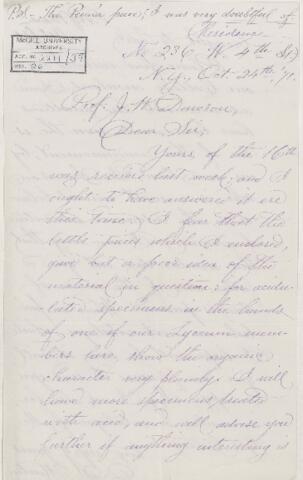 P.S. - The Penn'a piece; I was very doubtful of
McGILL UNIVERSITY
ARCHIVES
ACC. NO.
No. 236 W. 4th St.
N.Y. Oct. 24th,
Prof. J. W. Dawson,
Dear Sir,
Yours of the 16th
was received last week, and I
ought to have answered it ere
this time. I fear that the
little pieces which I enclosed,
gave but a poor idea of the
material in question; for acidu-
lated specimens in the hands
of one of our Lyceum mem-
bers here, show the organic
character very plainly. I will
have more specimens treated
with acid, and will advise you
further if anything interesting is